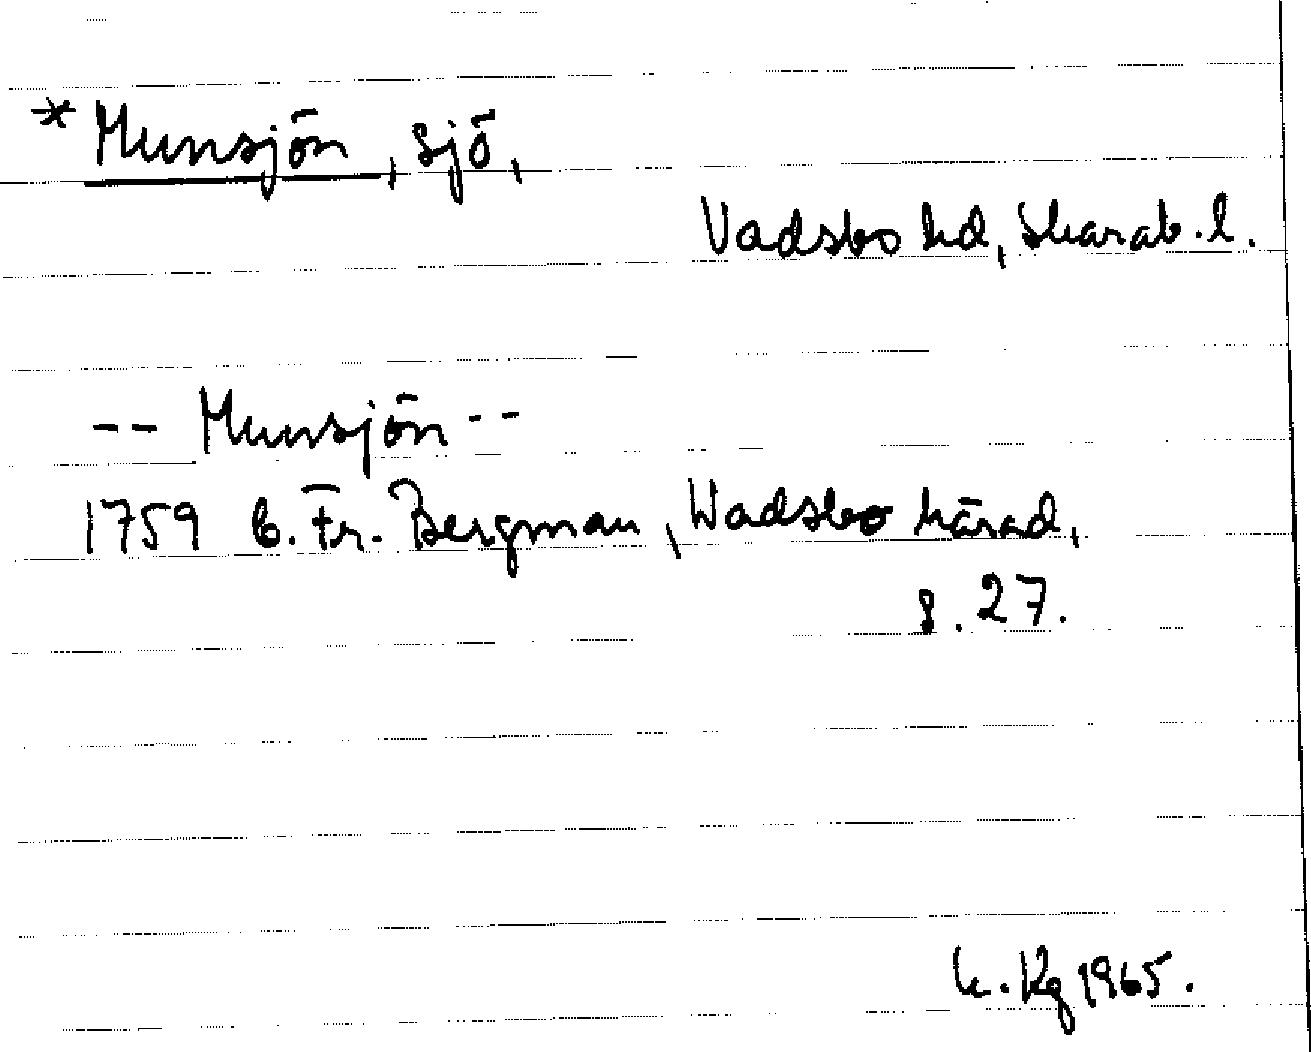 * Munsjön, sjö,
Vadsbo hd, Skarab. l.
-- Munsjön --
1759 B. Fr. Bergman, Wadsbo härad,
s. 27.
Kg 1965.